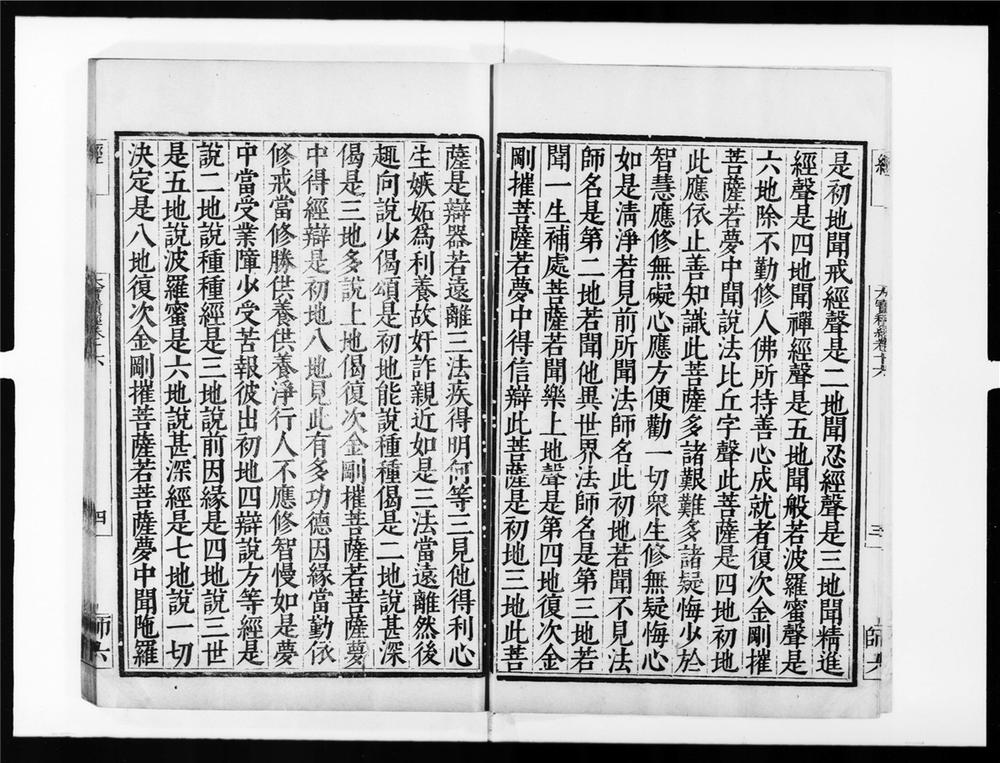 是初地聞戒經聲是二地聞忍經聲是三地聞精進
經聲是四地聞禪經聲是五地聞般若波羅蜜聲是
六地除不勤修人佛所持善心成就者復次金剛摧
菩薩若夢中聞說法比丘字聲此菩薩是四地初地
此應依止善知識此菩薩多諸艱難多諸疑悔少於
智慧應修無礙心應方便勸一切衆生修無疑悔心
如是清淨若見前所聞法師名此初地若聞不見法
師名是第二地若聞他異世界法師名是第三地若
聞一生補處菩薩若聞樂上地聲是第四地復次金
剛摧菩薩若夢中得信辯此菩薩是初地三地此菩
薩是辯器若遠離三法疾得明何等三見他得利心
生嫉妬爲利養故奸詐親近如是三法當遠離然後
趣向說少偈頌是初地能說種種偈是二地說甚深
偈是三地多說上地偈復次金剛摧菩薩若菩薩夢
中得經辯是初地八地見此有多功德因緣當勤依
修戒當修勝供養供養淨行人不應修智慢如是夢
中當受業障少受苦報彼出初地四辯說方等經是
說二地說種種經是三地說前因緣是四地說三世
是五地說波羅蜜是六地說甚深經是七地說一切
決定是八地復次金剛摧菩薩若菩薩夢中聞陁羅
經
四
師六